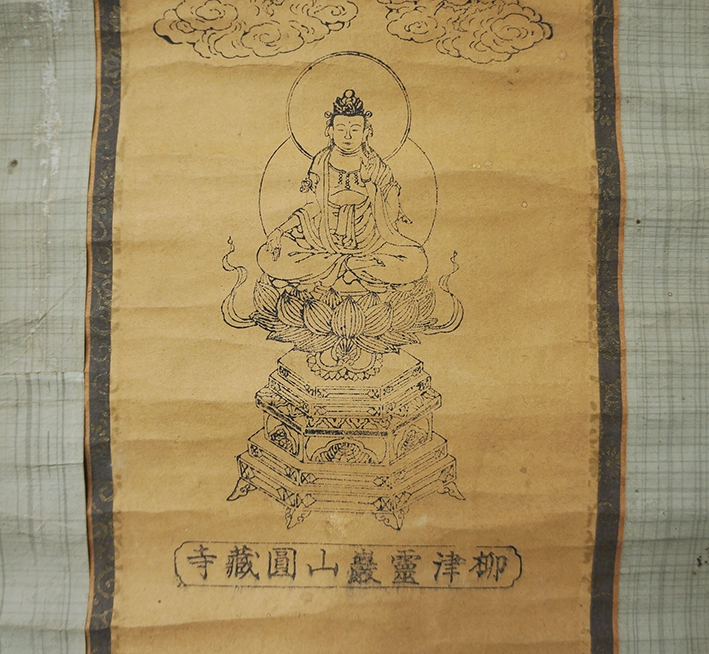 柳津靈巖山圓藏寺